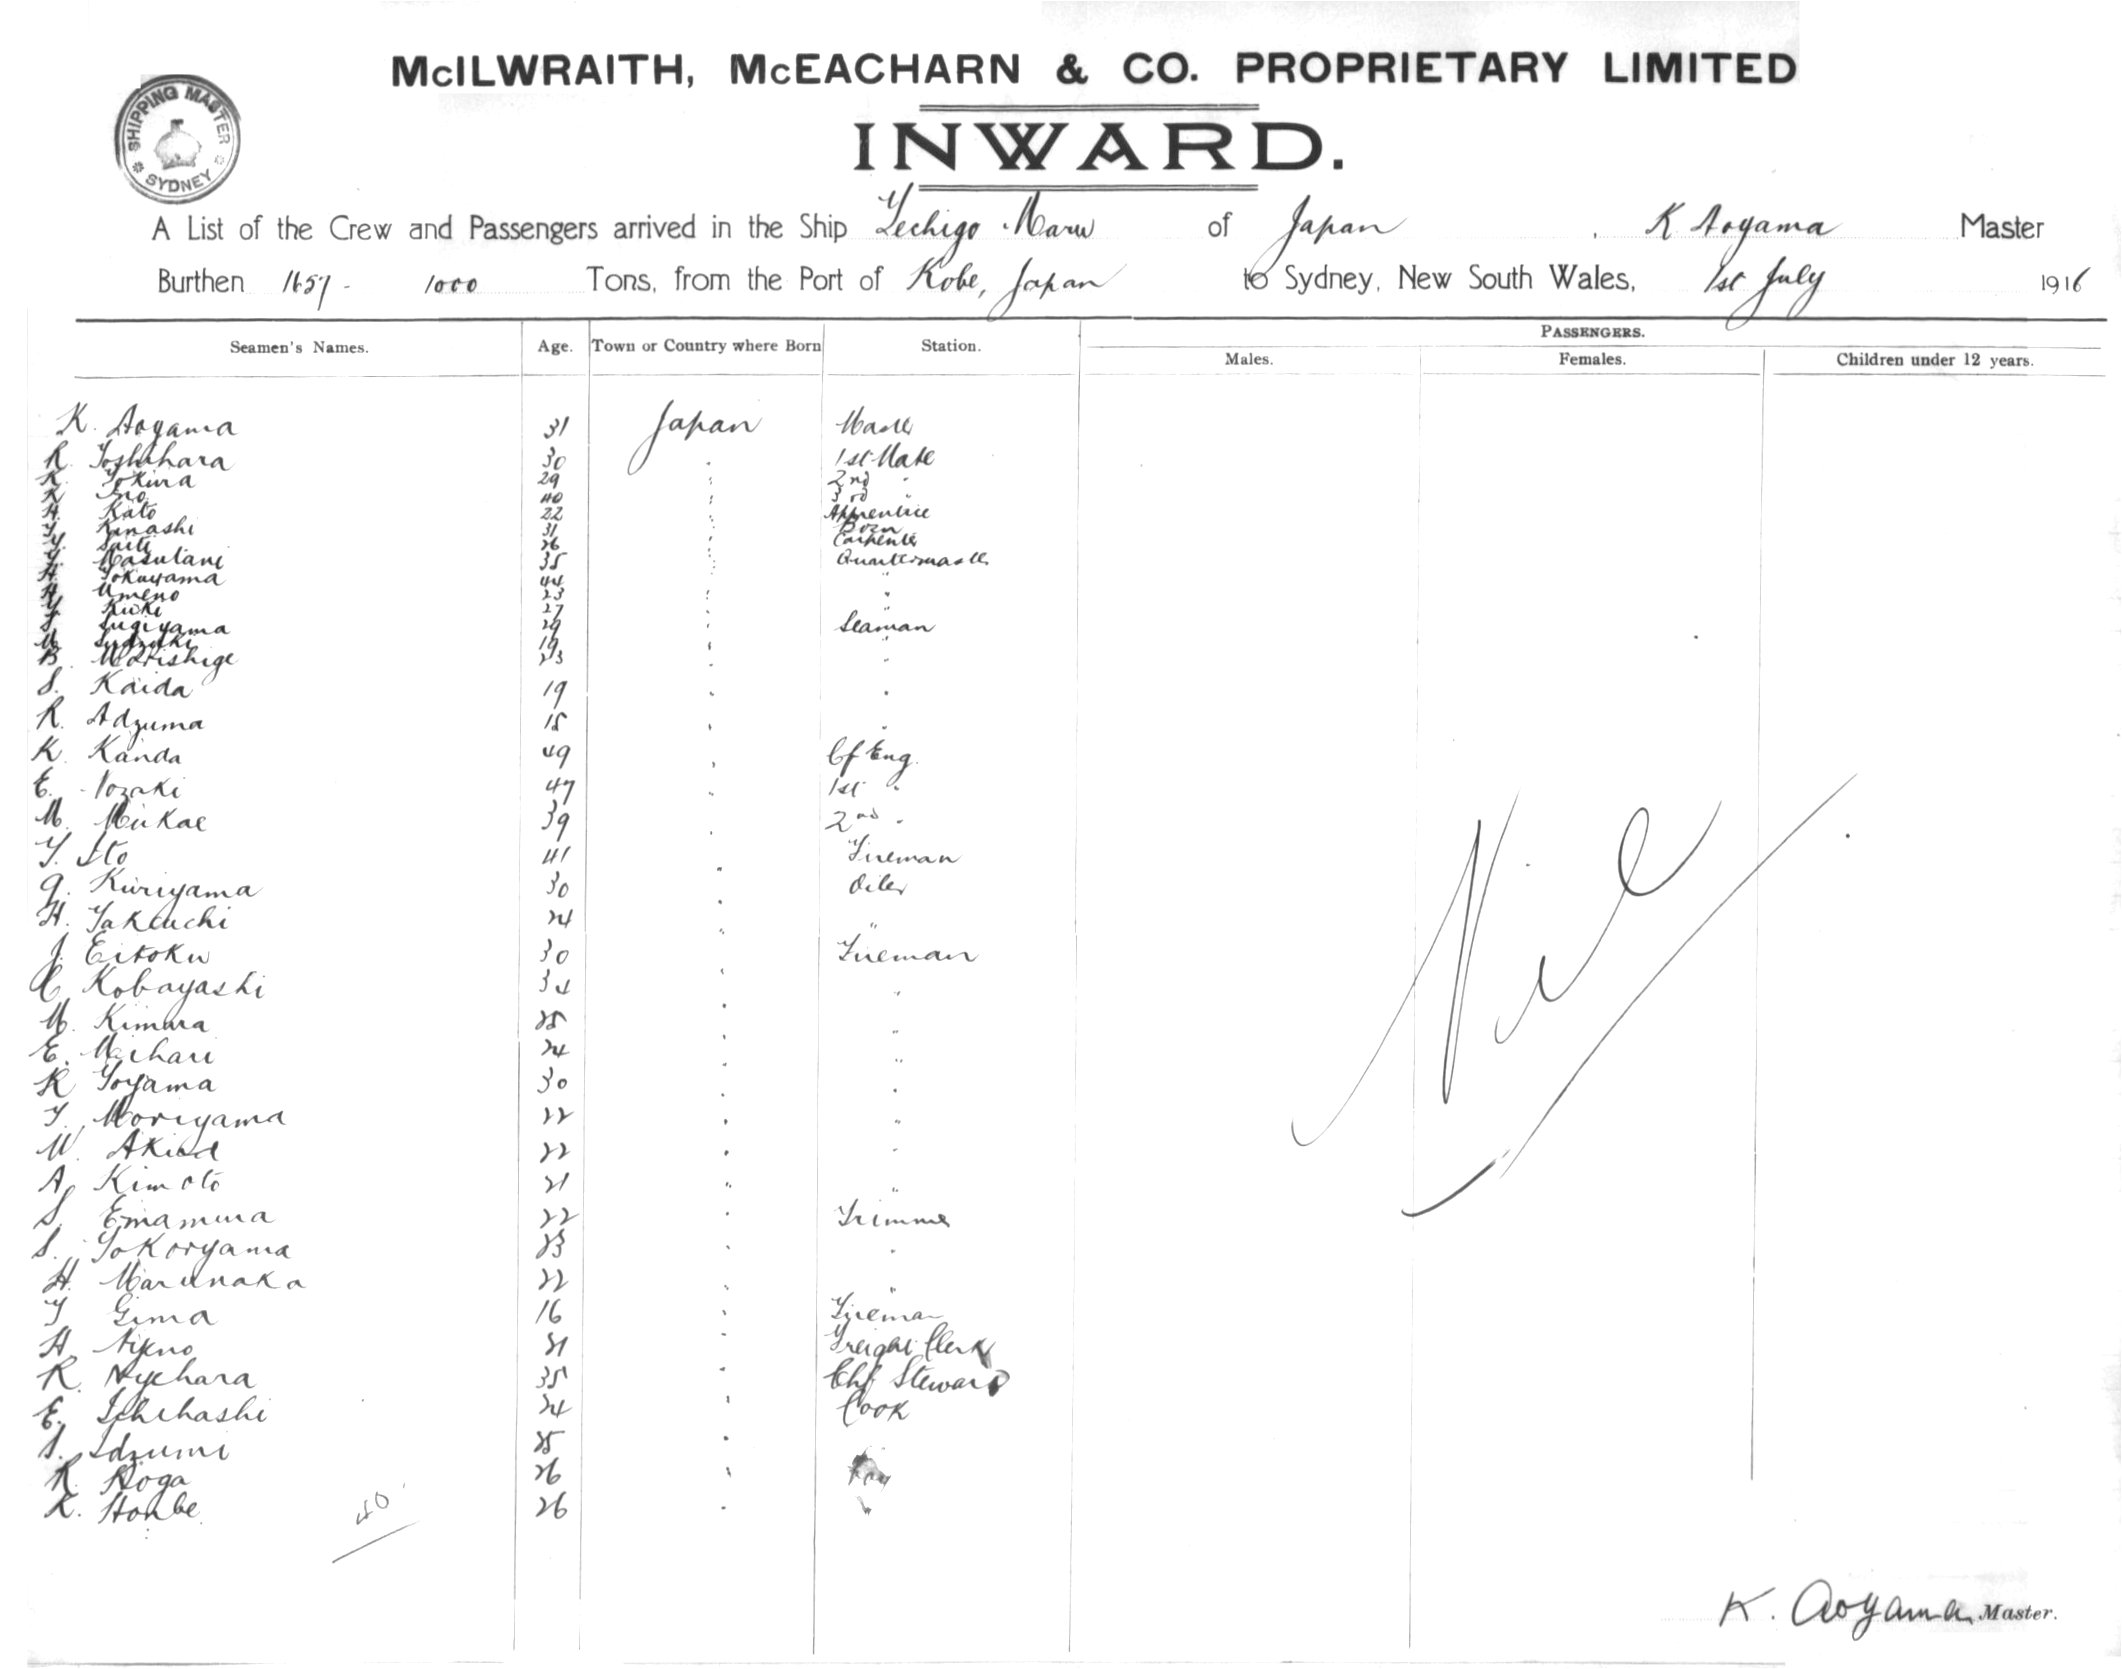 McILWRAITH, McEACHARN & CO. PROPRIETARY LIMITED
SHIPPING MASTER
SYDNEY
INWARD.
A List of the Crew and Passengers arrived in the Ship Yechigo Maru of Japan , K Aoyama Master
Burthen 1657 - 1000 Tons, from the Port of Kobe, Japan to Sydney, New South Wales, 1st July 1916
PASSENGERS.
Seamen's Names. Age. Town or Country where Born Station. Males. Females. Children under 12 years.
K. Aoyama 31 Japan Master
R. Yoshihara 30 " 1st Mate
K. 29 " 2nd "
K Ino 40 " 3rd "
H. Kato 22 " Apprentice
Y. Kinashi 31 " Bosn
Y. Saiti 26 " Carpenter
Y. Masutani 35 " Quartermaster
H. Tokuyama 44 " "
H. Umeno 23 " "
Y. Kuki 27 " "
S. Sugiyama 29 " Seaman
M. Sudzuki 19 " "
B. Morishige 23 " "
S. Kaida 19 " "
R. Adzuma 18 " "
K. Kanda 49 " Cf Eng.
E. Nozaki 47 " 1st "
M. Mukae 39 " 2nd "
Y. Ito 41 " Fireman
G. Kuriyama 30 " Oiler
H. Takeuchi 24 " "
J. Eitoku 30 " Fireman
C Kobayashi 34 " "
M. Kimura 25 " "
E. Meihari 24 " "
K Toyama 30 " "
T. Moriyama 22 " "
W. 22 " "
A. Kimoto 21 " "
S. Emamura 22 " Trimmer
S. Yokoryama 23 " "
H. Marunaka 22 " "
T Gima 16 " Fireman
H. 31 " Freight Clerk
R. Nyehara 35 " Chf Steward
E. Ichihashi 24 " Cook
S. Idzumi 25 "
K. Koga 26 " Boy
K. Honbe 26 " "
40
Nil
K. Aoyama Master.